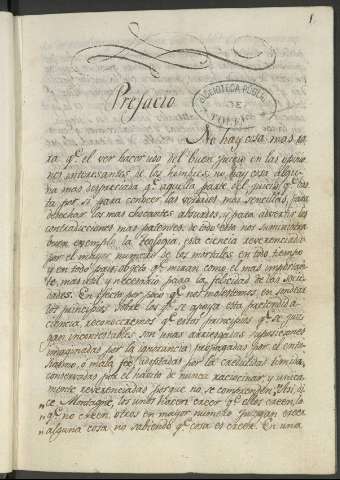 1
Prefacio
BIBLIOTECA PUBLICA
DE
TOLEDO
No hay cosa mas ra-
ra q.e el ver hacer uso del buen juicio en las opinio-
nes interesantes á los hombres; no hay cosa algu-
na mas despreciada q.e aquella parte del juicio q.e bas-
ta por sí para conocer las verdades mas sencillas, para
desechar los mas chocantes absurdos y para abstenir las
contradicciones mas patentes: de todo esto nos suministra
buen exemplo la teología, esta ciencia reverenciada
por el mayor numero de los mortales en todo tiempo
y en todo pais, objeto q.e miran como el mas importan-
te, mas util y necesario para la felicidad de las socie-
dades. En efecto por poco q.e nos molestemos, en sondear
los principios sobre los q.e se apoya esta pretendida
ciencia, reconoceremos q.e estos principios q.e se juz-
gan incontestables son unas arriesgadas suposiciones
imaginadas por la ignorancia propagadas por el entu-
siasmo, ó mala fee, adoptadas por la credulidad timida,
conservadas por el habito de nunca raciocinar y unica-
mente reverenciadas porque no se comprenden. Unos, di-
ce Montagne, los unos hacen creer q.e ellos creen, lo
q.e no creen, otros en mayor numero juzgan creer
alguna cosa no sabiendo q.e cosa es creer. En una